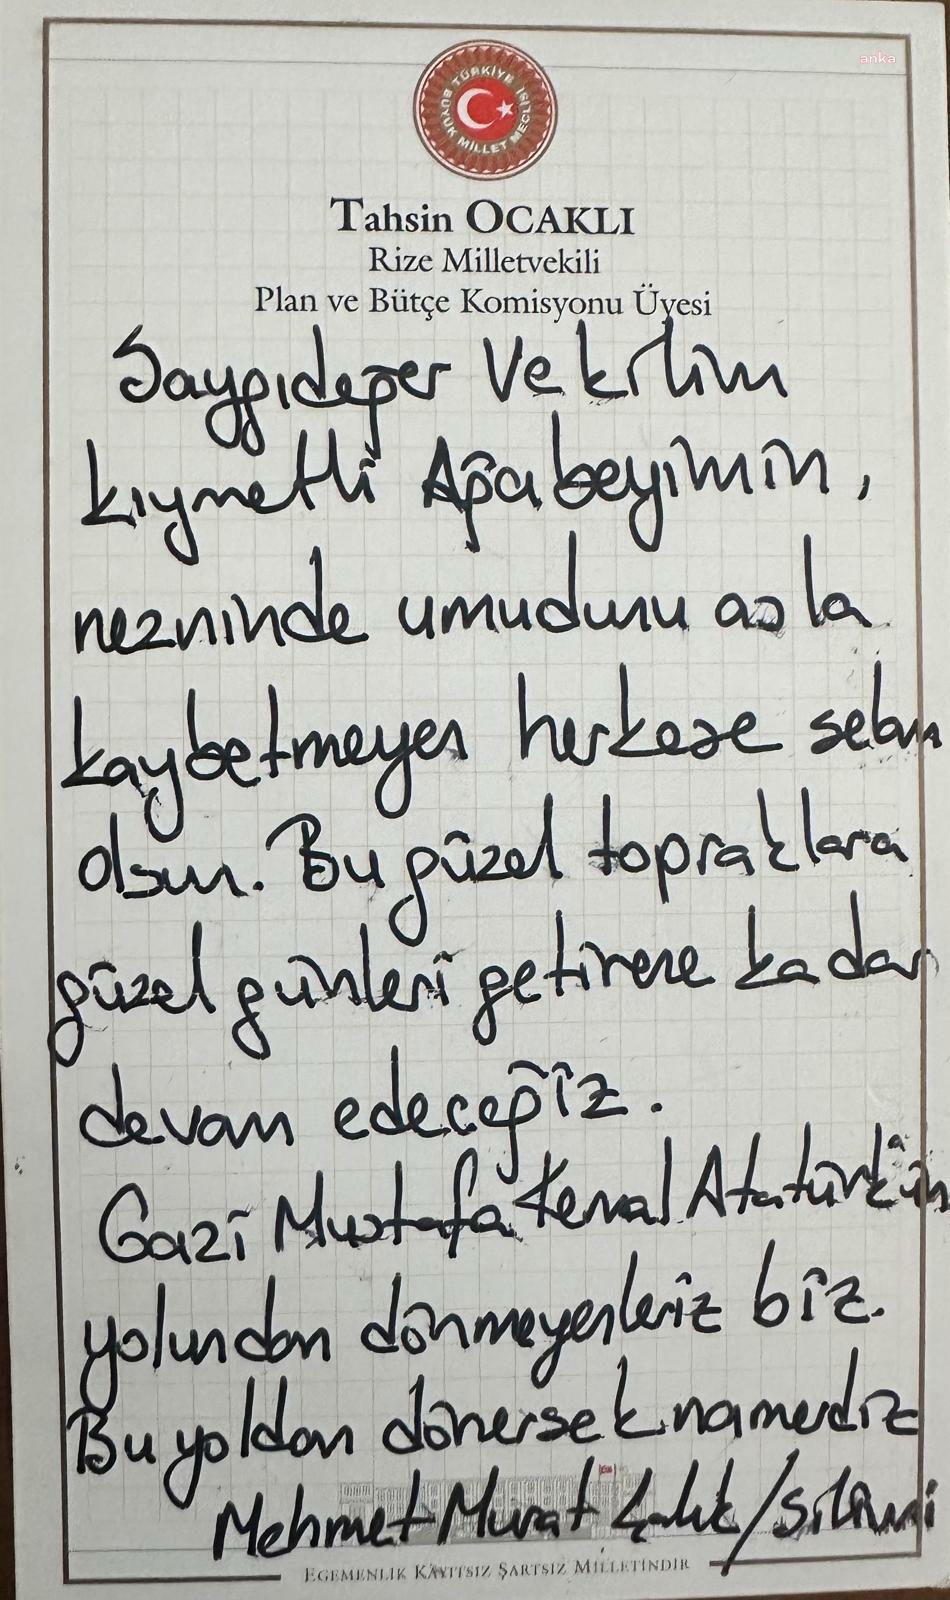 anka
TÜRKİYE BÜYÜK MİLLET MECLİSİ
Tahsin OCAKLI
Rize Milletvekili
Plan ve Bütçe Komisyonu Üyesi
Saygıdeğer Vekilim
kıymetli Ağabeyimin,
nezninde umudunu asla
kaybetmeyen herkese selam
olsun. Bu güzel topraklara
güzel günleri getirene kadar
devam edeceğiz.
Gazi Mustafa Kemal Atatürk'ün
yolundan dönmeyenleriz biz.
Bu yoldan dönersek namerdiz
Mehmet Murat Çalık / Silivri
EGEMENLİK KAYITSIZ ŞARTSIZ MİLLETİNDİR